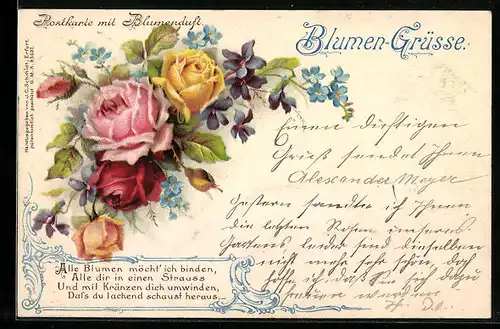 Postkarte mit Blumenduft.
Blumen-Grüsse.
Herausgegeben von J. C. Schmidt, Erfurt.
patentamtlich geschützt G. M.
Einen duftigen
Gruß sendet Ihnen
Alexander Meyer
Gestern sandte ich Ihnen
die letzten Rosen unseres
Gartens, leider sind dieselben
nicht mehr sehr schön, doch
hoffe ich, daß Sie sich dazu
werden
Alle Blumen möcht' ich binden,
Alle dir in einen Strauss
Und mit Kränzen dich umwinden,
Dass du lachend schaust heraus...